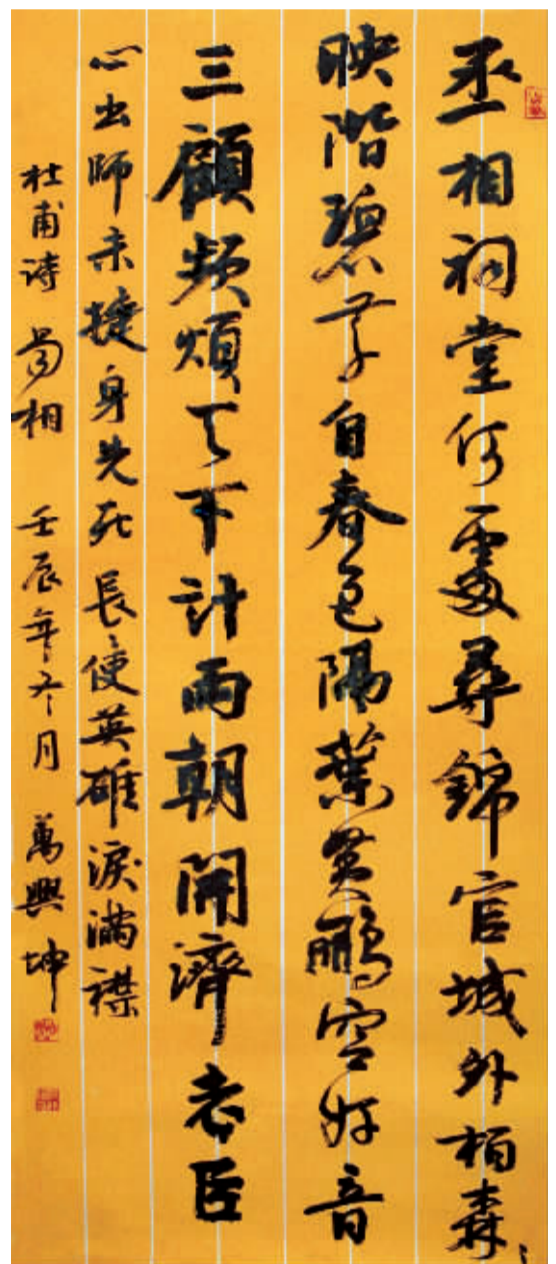 丞相祠堂何處尋錦官城外柏森〻
映階碧草自春色隔葉黃鸝空好音
三顧頻煩天下計兩朝開濟老臣
心出師未捷身先死長使英雄淚滿襟
杜甫诗 蜀相 壬辰年冬月 萬興坤